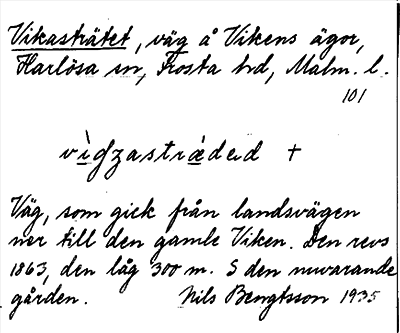 Vikasträtet, väg å Vikens ägor,
Harlösa sn, Frosta hd, Malm. l.
101
vìgzastrǽdəd +
Väg, som gick från landsvägen
ner till den gamle Viken. Den revs
1863, den låg 300 m. S den nuvarande
gården. Nils Bengtsson 1935